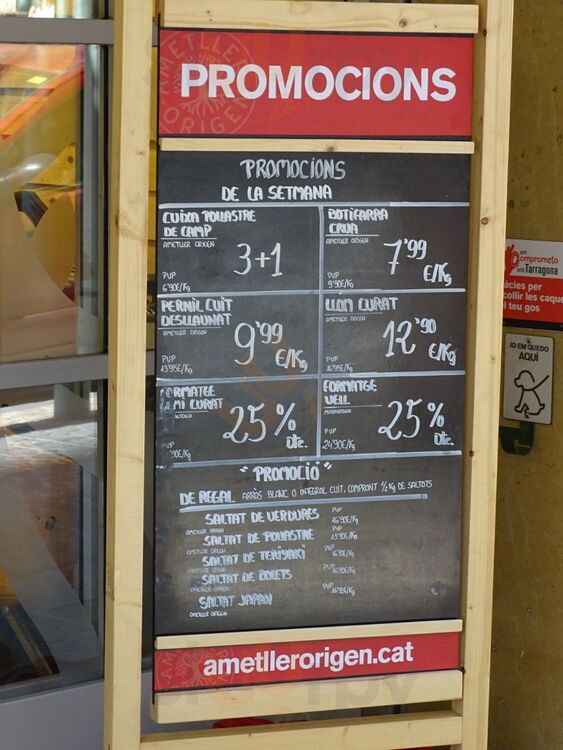 PROMOCIONS
PROMOCIONS
DE LA SETMANA
CUIXA POLLASTRE
DE CAMP
AMETLLER ORIGEN
3+1
PUP
6'90€/Kg
BOTIFARRA
CRUA
AMETLLER ORIGEN
7'99
€/Kg
PUP
9'90€/Kg
PERNIL CUIT
DESLLAUNAT
AMETLLER ORIGEN
9'99
€/Kg
PUP
13'95€/Kg
LLOM CURAT
AMETLLER ORIGEN
12'90
€/Kg
PUP
16'95€/Kg
FORMATGE
SEMI CURAT
25%
Dte.
PUP
FORMATGE
VELL
25%
Dte.
PUP
24'90€/Kg
"PROMOCIÓ"
DE REGAL ARRÒS BLANC O INTEGRAL CUIT, COMPRANT 1/2 Kg DE SALTATS
SALTAT DE VERDURES PUP 16'90€/Kg
AMETLLER ORIGEN
SALTAT DE POLLASTRE PUP 15'90€/Kg
AMETLLER ORIGEN
SALTAT DE TERIYAKI PUP 16'90€/Kg
AMETLLER ORIGEN
SALTAT DE BOLETS PUP 16'90€/Kg
AMETLLER ORIGEN
SALTAT JAPAN PUP 16'90€/Kg
AMETLLER ORIGEN
ametllerorigen.cat
em
comprometo
amb Tarragona
àcies per
collir les caques
l teu gos
JO EM QUEDO
AQUÍ